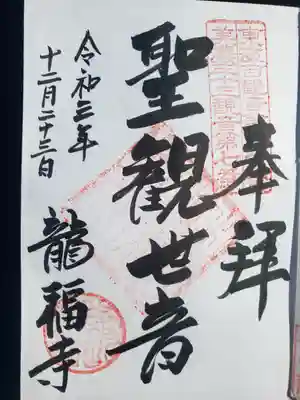 奉拝
聖観世音
令和三年
十二月二十三日
龍福寺